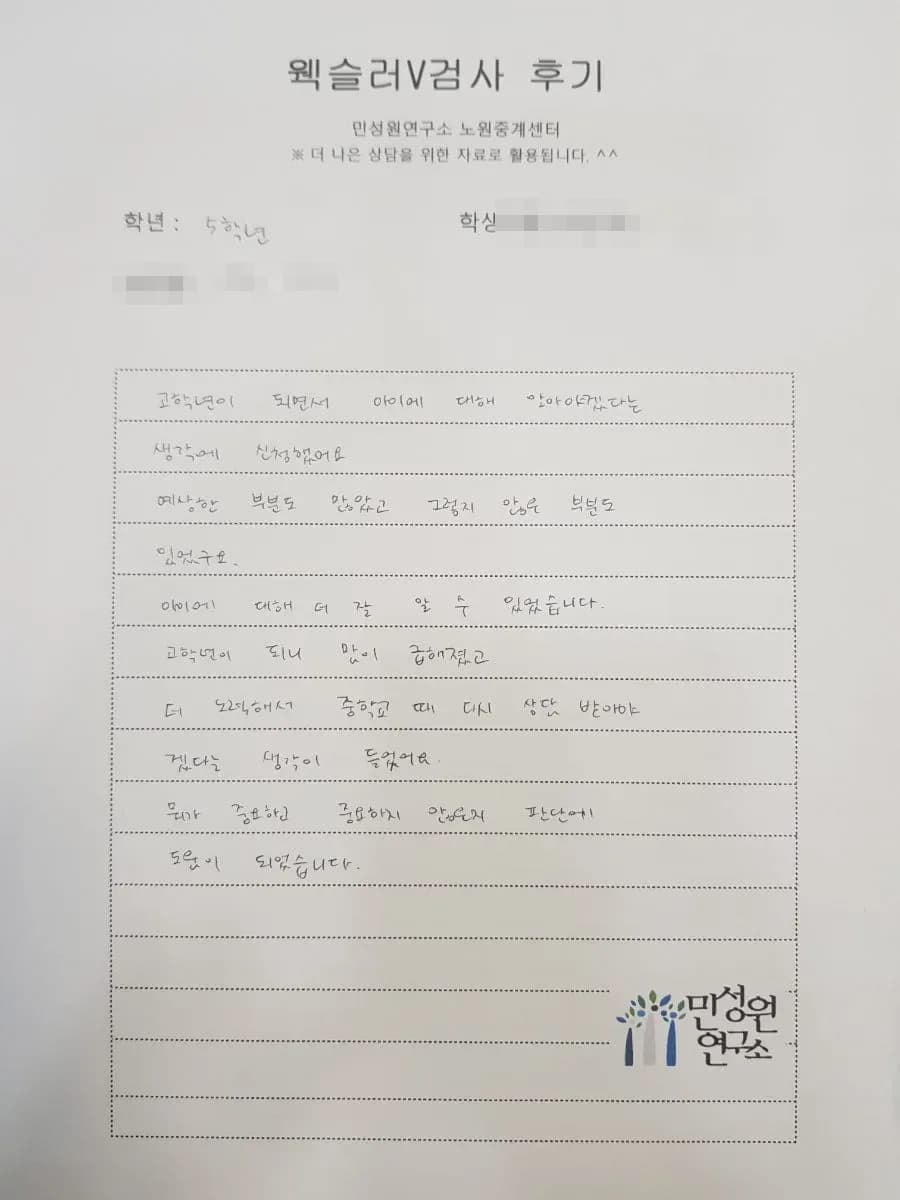 웩슬러V검사 후기
민성원연구소 노원중계센터
※ 더 나은 상담을 위한 자료로 활용됩니다. ^^
학년 : 5학년 학생
고학년이 되면서 아이에 대해 알아야겠다는
생각에 신청했어요
예상한 부분도 많았고 그렇지 않은 부분도
있었구요.
아이에 대해 더 잘 알 수 있었습니다.
고학년이 되니 맘이 급해졌고
더 노력해서 중학교 때 다시 상담 받아야
겠다는 생각이 들었어요.
뭐가 중요하고 중요하지 않은지 판단에
도움이 되었습니다.
민성원
연구소